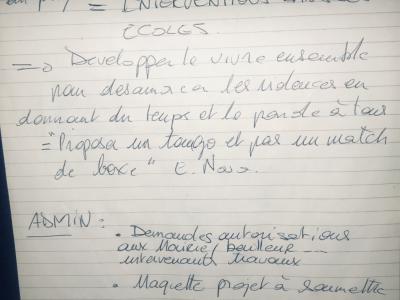 = INTERVENTIONS
ECOLES.
=> Developper le vivre ensemble
pour desamorcer les violences en
donnant du temps et la parole à tous
= "Proposer un tango et pas un match
de boxe" E.
ADMIN :
• Demandes autorisations
aux Mairie/bailleur ---
intervenants travaux
• Maquette projet à soumettre